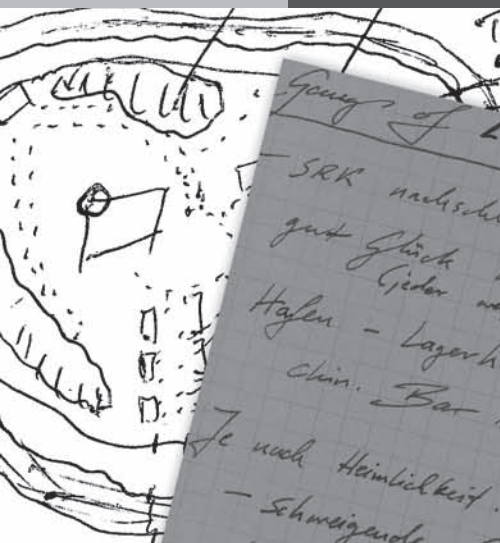 Gang of
- SRK nachsch
gut Glück
(jeder
Hafen - Lagerh
chin. Bar
Je nach Heimlichkeit.
- Schweigende